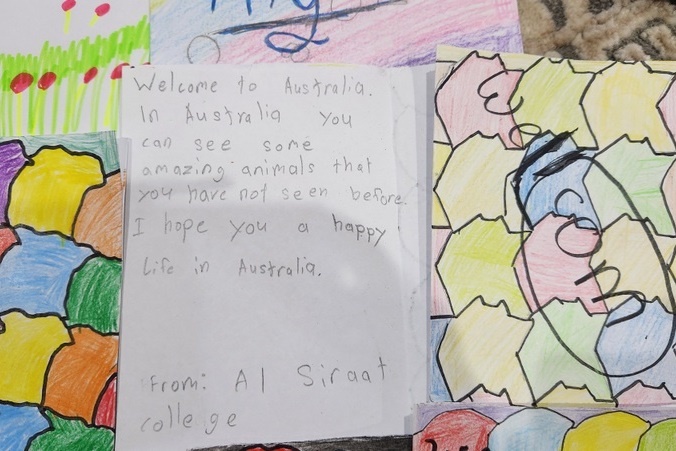 Welcome to Australia.
In Australia you
can see some
amazing animals that
you have not seen before.
I hope you a happy
life in Australia.
From: Al Siraat
college